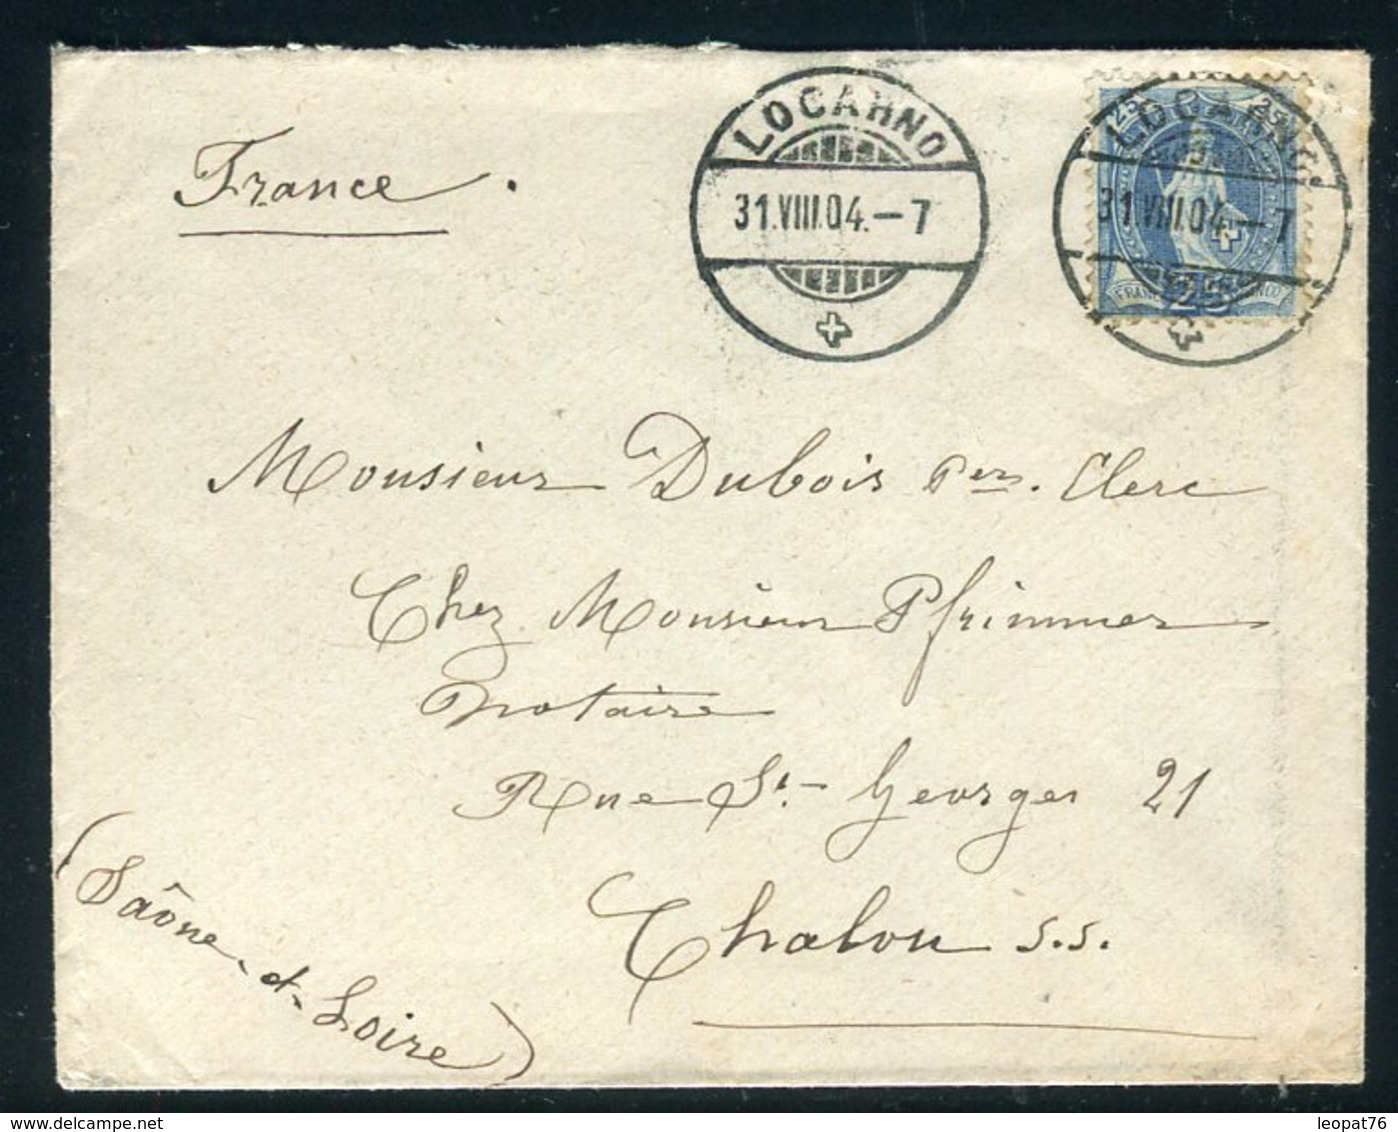 LOCARNO
31.VIII.04.—7
25 25
LOCARNO
31.VIII.04.—7
FRANCO
25
France.
Monsieur Dubois Per. Clerc
Chez Monsieur Pfrimmer
notaire
Rue St- Georges 21
Chalon s.s.
(Saône-et-Loire)
delcampe.net
leopat76